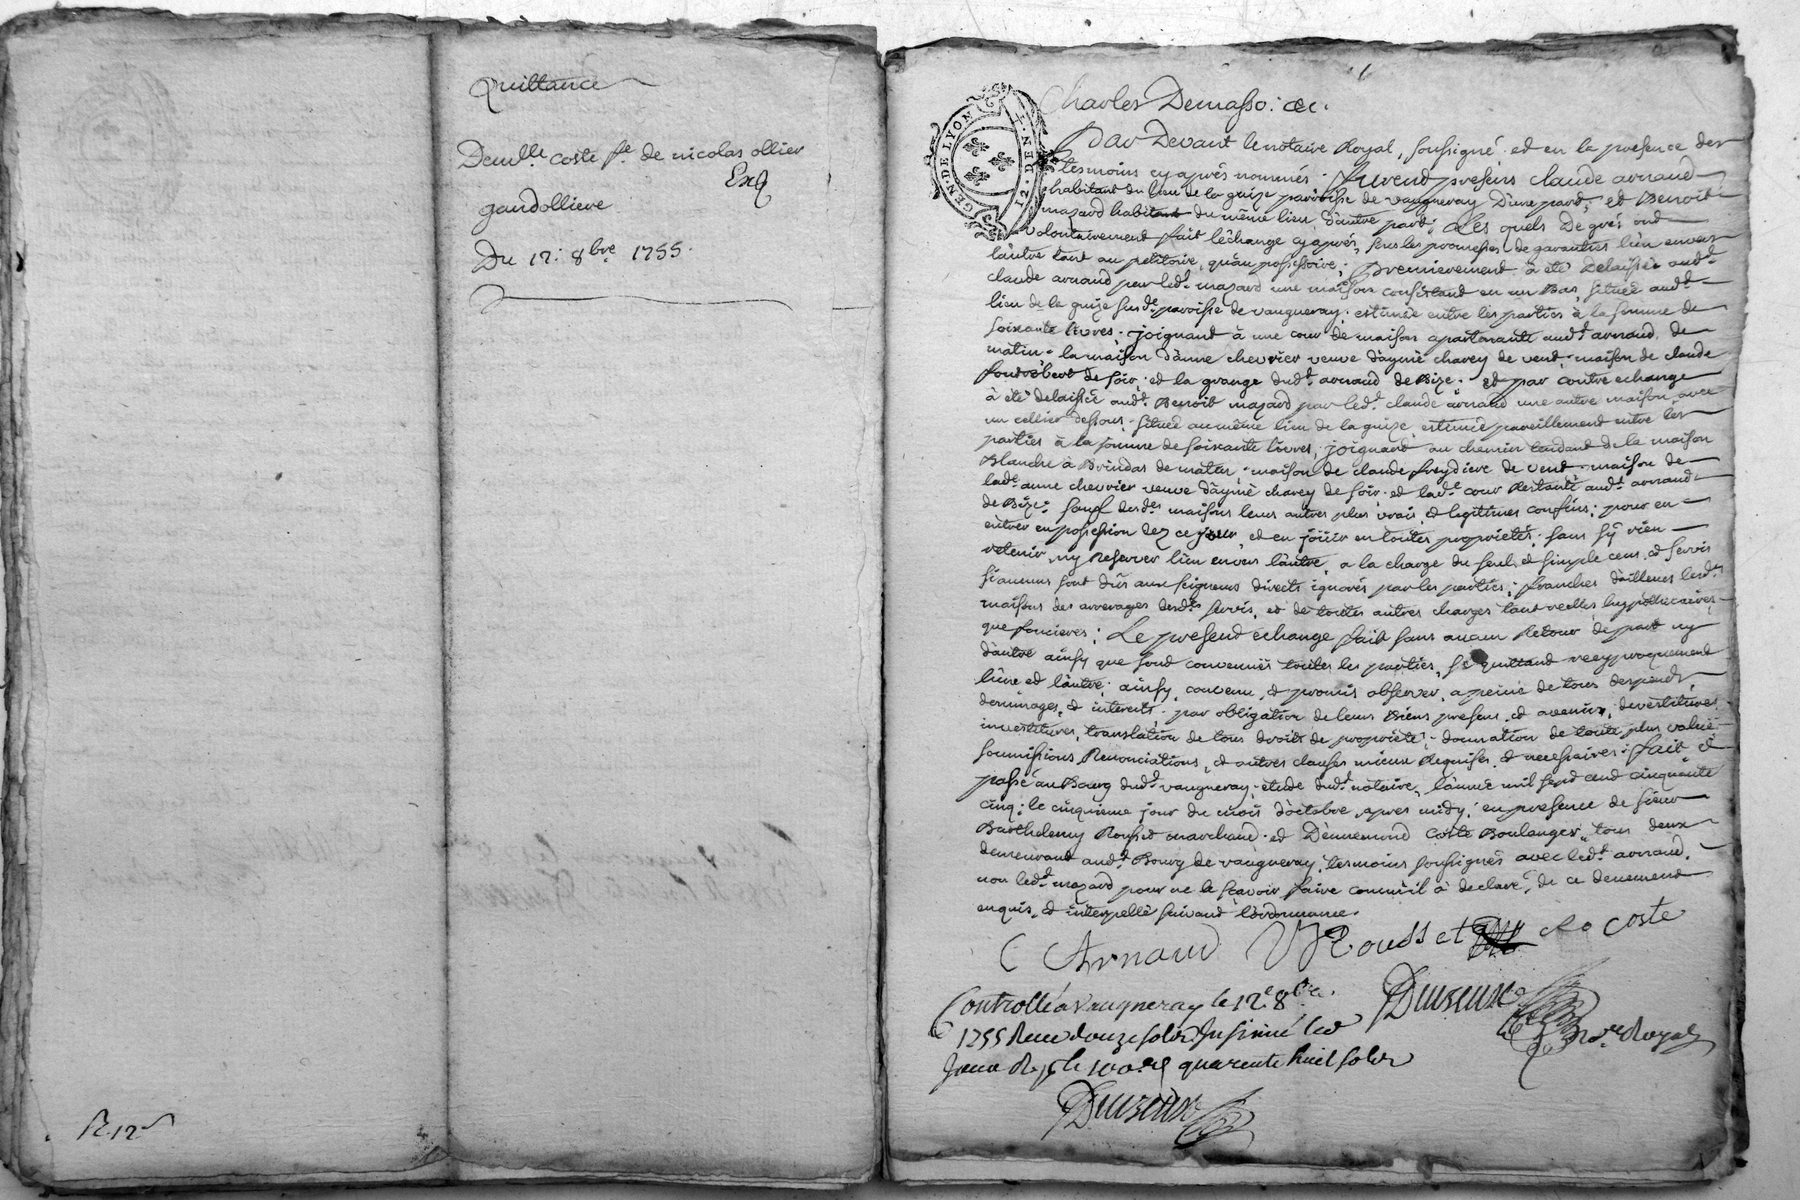 Quittance
Demlle coste fe de nicolas ollier
gaudolliere
Du 12: 8bre 1755.
R. 12s
GEN. DE LYON
12. DEN.
Charles Demasso: &c.
Par Devant le notaire Royal, soussigné et en la presence des
tesmoins cy après nommés: furent presens claude arnaud
habitant du lieu de la guize parroisse de vaugneray D'une part, et Benoit
mazard habitant du même lieu d'autre part; Les quels De gré ont
volontairement fait l'échange cy après, sous les promesses de garanties l'un envers
l'autre tant au petitoire, qu'au possessoire; Premierement à été delaissée audt
claude arnaud par ledt mazard une maison consistant en un Bas, située audt
lieu de la guize susde paroisse de vaugneray; estimée entre les parties à la somme de
soixante livres; joignant à une cour de maison apartenante audt arnaud de
matin. la maison d'anne chevrier veuve d'aymé chavey de vent. maison de claude
de soir. et la grange dudt arnaud de Bize: et par contre echange
à été delaissée audt Benoit mazard par ledt claude arnaud une autre maison avec
un cellier dessous; située au même lieu de la guize estimée pareillement entre les
parties à la somme de soixante livres, joignant au chemin tendant de la maison
Blanche à Brindas de matin. maison de claude freydiere de vent. maison de
lade anne chevrier veuve d'aymé chavey de soir. et lade cour Restante audt arnaud
de Bize. sauf desdes maisons leurs autres plus vrais, & legitimes confins; pour en
entrer en possession dez ce jour, et en jöüir en toutes proprietés, sans s'y rien
retenir, ny Reserver l'un envers l'autre, a la charge du seul, & simple cens, & servis
si aucuns sont dûs aux seigneurs directs ignorés par les parties; franches d'ailleurs lesdts
maisons des arrerages desdts servis, et de toutes autres charges tant reelles hypothecaires,
que foncieres; Le present echange fait sans aucun Retour de part ny
d'autre ainsy que sont convenües toutes les parties, se quittant reciproquement
l'une et l'autre; ainsy convenu, & promis observer, a peine de tous despends,
dommages, & interests, par obligation de leurs Biens presens, & avenir, devestitures,
investitures, translation de tous droits de proprieté; donnation de toute plus valüe
soumissions Renonciations, & autres clauses mieux Requises, & necessaires: fait &
passé au Bourg dudt vaugneray, etude dudt notaire, l'année mil sept cent cinquante
cinq; le cinquieme jour du mois d'octobre, apres midy; en presence de sieur
Barthelemy Rousset marchand, et D'ennemond Coste Boulanger, tous deux
demeurant audt Bourg de vaugneray, tesmoins soussignés avec ledt arnaud,
non ledt mazard pour ne le sçavoir faire comm'il à declaré, de ce deuement
enquis, & interpellé suivant l'ordonnance.
C Arnaud Rousset Coste
Controllé a vaugneray le 12e 8bre
1755 Receu douze sols Insinué led
jour quarente huit sols
nore Royal